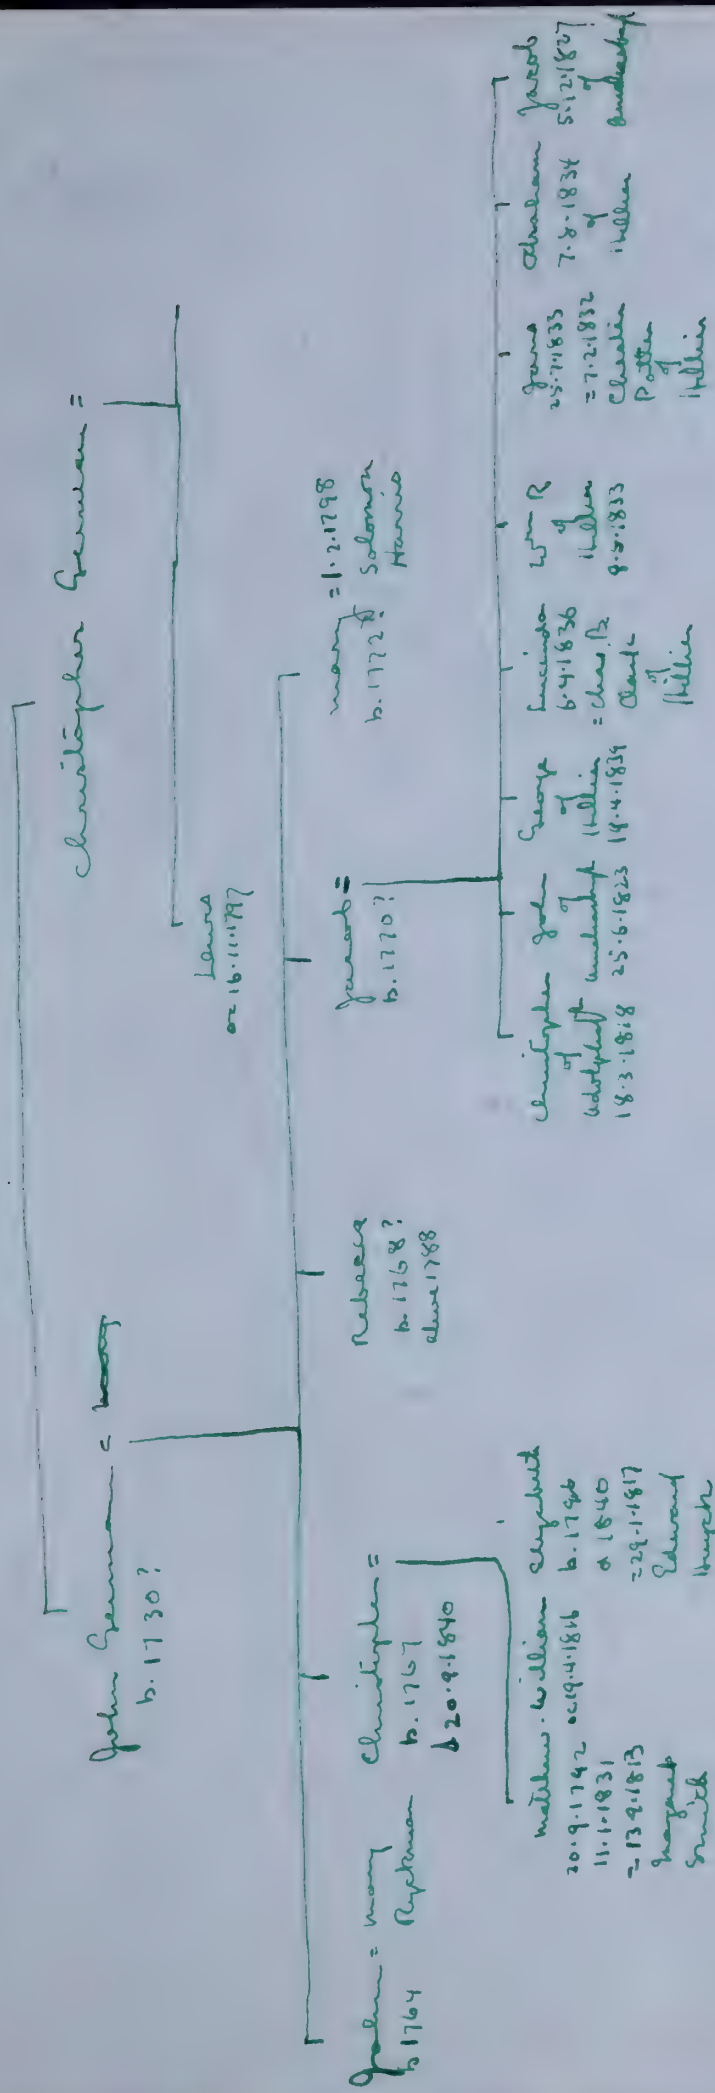 John German =
b. 1730?
Christopher German =
Lewis
oc 16.11.1797
John = Mary
b 1764 Ryckman
Christopher =
b. 1767
d 20.9.1840
Rebecca
b. 1768?
alive 1788
Jacob =
b. 1770?
Mary = 1.2.1798
b. 1772? Solomon
Harris
Matthew
20.9.1792
11.1.1831
= 13.9.1813
Margaret
Smith
William
oc 19.4.1816
Elizabeth
b. 1796
d 1840
= 29.1.1817
Edward
Huyck
Christopher
of
Adolphust
18.3.1818
John
of
25.6.1823
George
of
Hillier
19.4.1834
Lucinda
6.4.1836
= Chas. B.
Clark
of
Hillier
Wm R
of
Hillier
8.5.1833
25.7.1833
= 7.2.1832
Charles
Potter
of
Hillier
Abraham
7.8.1834
of
Hillier
Jacob
5.12.1827
of